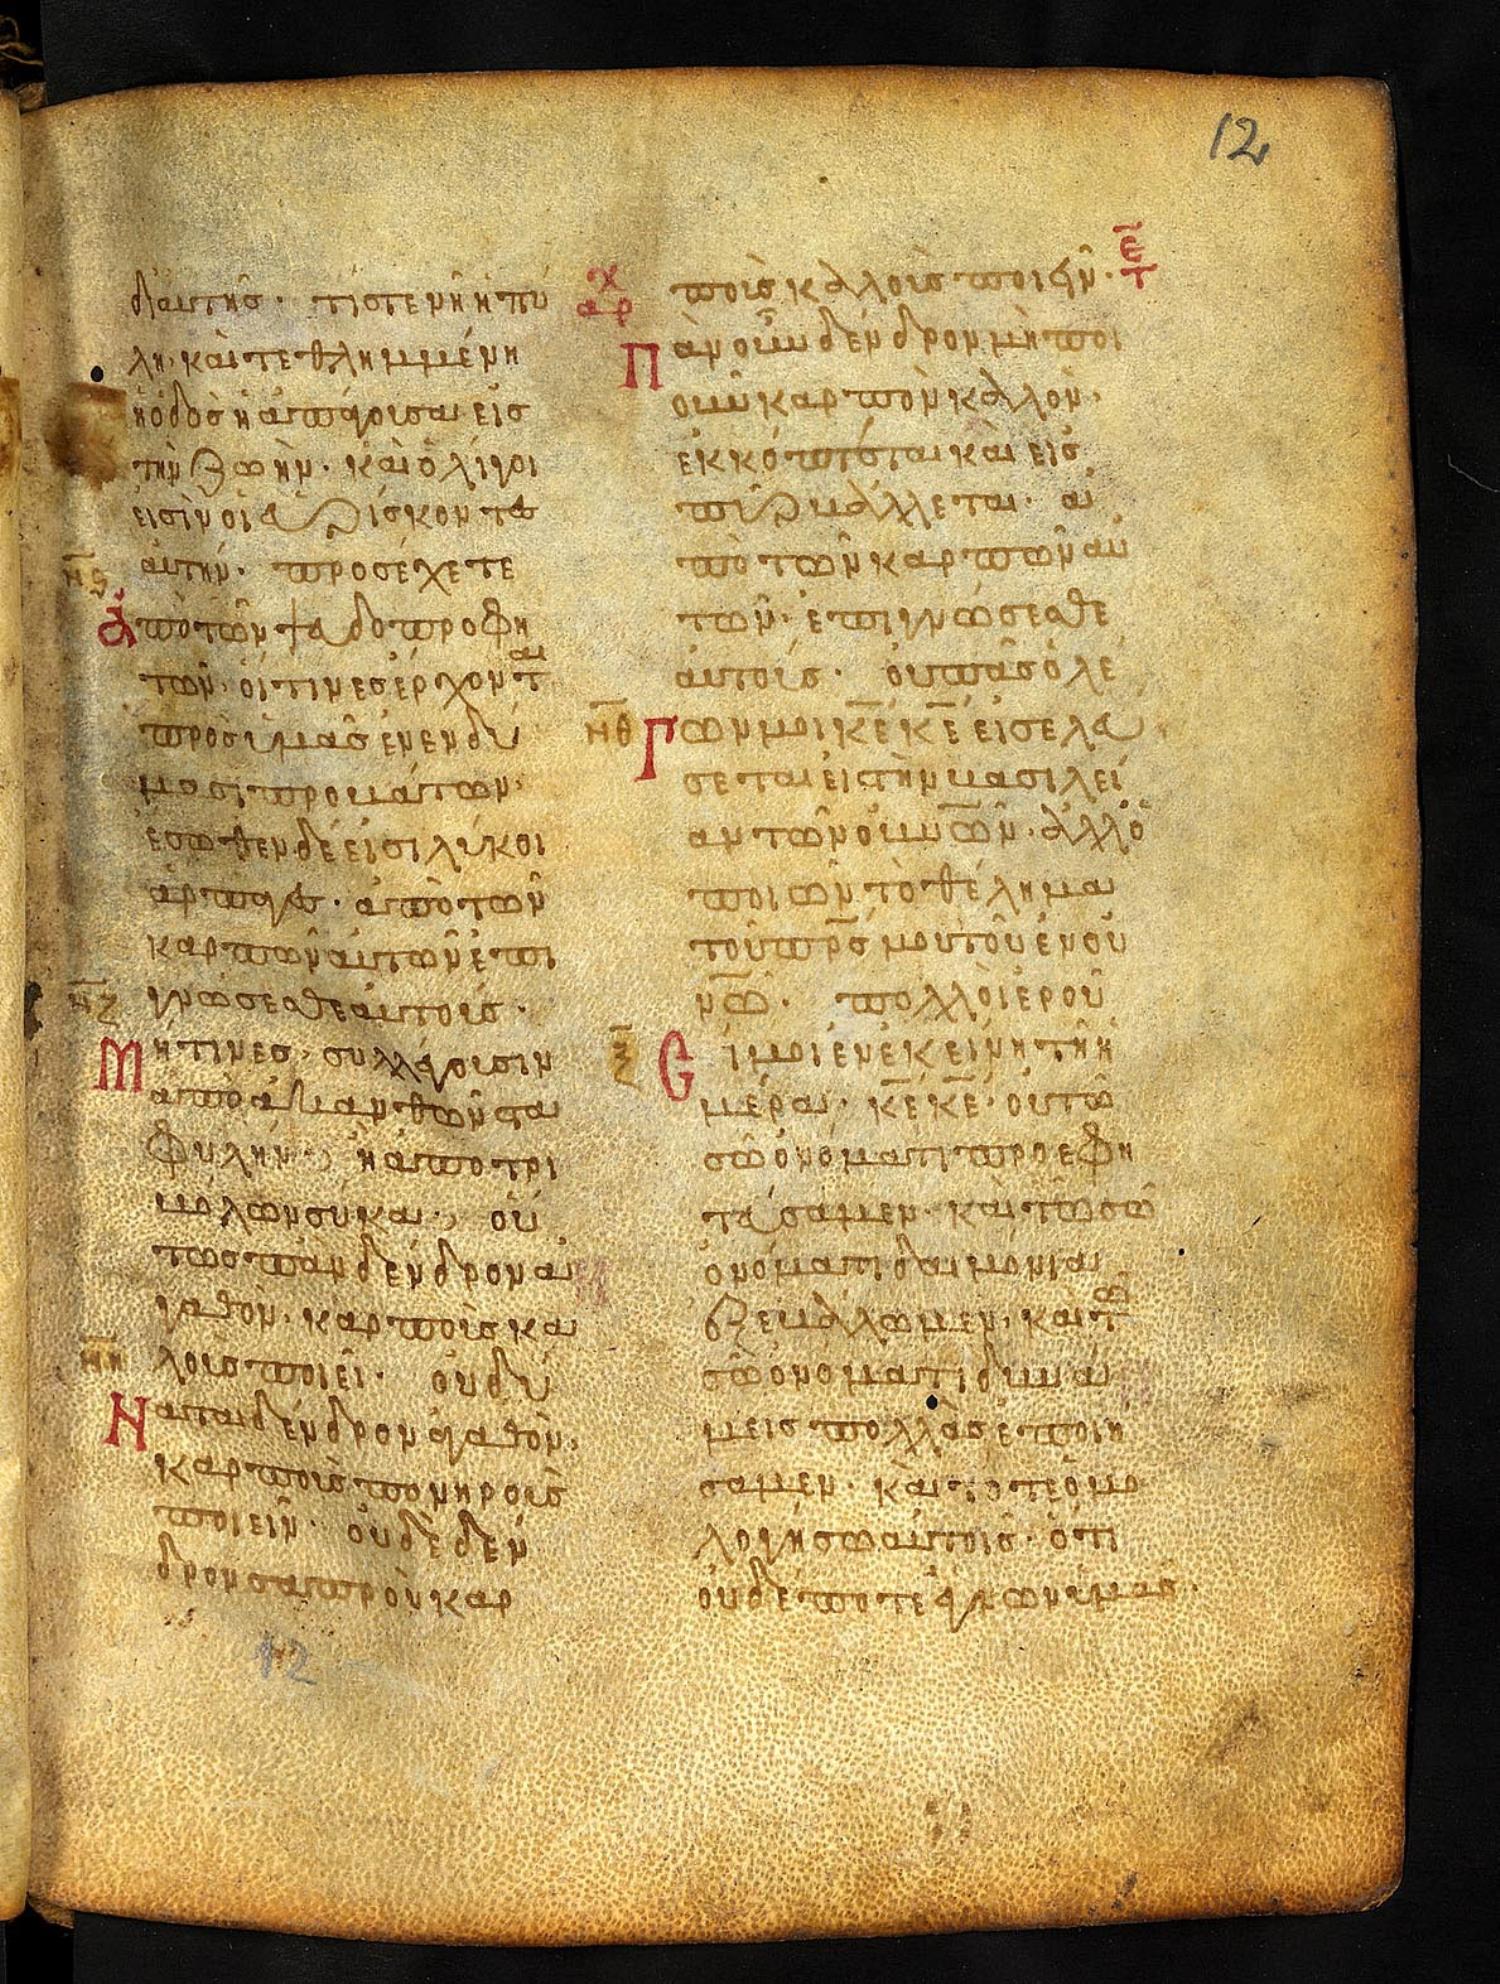 12
δι αυτῆσ· τί στενὴ ἡ πύ
λη· καὶ τεθλημμένη
ἡ ὁδὸσ ἡ ἀπάγουσα εἰσ
τὴν ζωὴν· καὶ ὀλίγοι
εἰσὶν οἱ εὑρίσκοντεσ
αὐτήν· προσέχετε
ἀπὸ τῶν ψευδοπροφη
τῶν· οἵτινεσ ἔρχοντ̅αι
πρὸσ ὑμᾶσ ἐν ενδύ
μασι προβάτων·
ἔσωθεν δέ εἰσι λύκοι
ἅρπαγεσ· ἀπὸ τῶν
καρπῶν αὐτῶν ἐπι
γνώσεσθε αὐτοὺσ·
Μήτι νεσ· συλλέγουσιν
ἀπὸ ἀκανθῶν στα
φυλήν· ἢ ἀπο τρι
βόλων σύκα· οὕ
τωσ πὰν δένδρον ἀ
γαθὸν· καρποὺσ κα
λοὺσ ποιεῖ· οὐ δύ
Ναται δένδρον ἀγαθὸν·
καρποὺσ πονηροὺσ
ποιεῖν· οὐδὲ δέν
δρον σαπρὸν καρ
12
χ
αρ
ποὺσ καλλοὺσ ποιεῖν· ε̅τ
Πὰν οὖν δένδρον μὴ ποι
οῦν καρπὸν καλλὸν·
ἐκκόπτεται καὶ εἰσ
πῦρ βάλλεται· ἀ
πὸ τῶν καρπῶν αὐ
τῶν· ἐπιγνώσεσθε
ἀυτούσ· ὀυ πᾶσ ὁ λέ
Γων μοι κ̅ε κ̅ε εἰσελεύ
σεται εἰς τὴν βασιλεί
αν τῶν οὐν̅ῶν· ἀλλ ὁ
ποιῶν τὸ θέλημα
τοῦ π̅ρσ μου τοῦ ἐν οὐ
ν̅ω· πολλοὶ ἐροῦ
Σί μοι ἐν ἐκείνη τῆ ἡ
μέρα· κ̅ε κ̅ε· οὐ τῶ
σῶ ὀνόματι προεφη
τεύσαμεν· καὶ τῶ σῶ
ὀνόματι δαιμόνια
ἐξεβάλωμεν· καὶ τ̅ω
σῶ ὀνόματι δυνά
μεισ πολλὰσ ἐποιή
σαμεν· καὶ τότε ὁμο
λογήσω αὐτοῖσ· ὅτι
οὐδέποτε ἔγνων ὑμᾶσ·